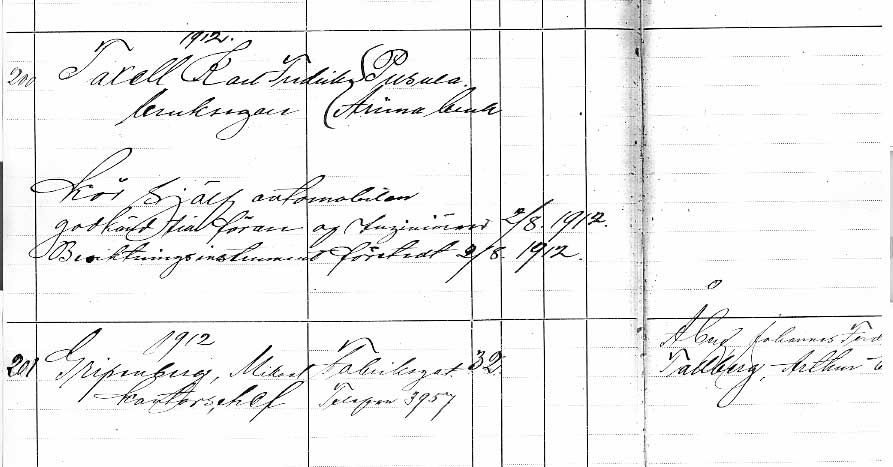 1912.
200 Taxell Karl Fredrik Pusula
bruksegare Arima bruk
Kör sjelf automobilen
godkänd till förare av Ingeniören 2/8. 1912.
Besiktningsinstrument företedt 2/8. 1912.
1912
201 Gripenberg, Mikael Fabriksgat 32
kontorschef Telefon 3957
Johannes
Tallberg, Arthur